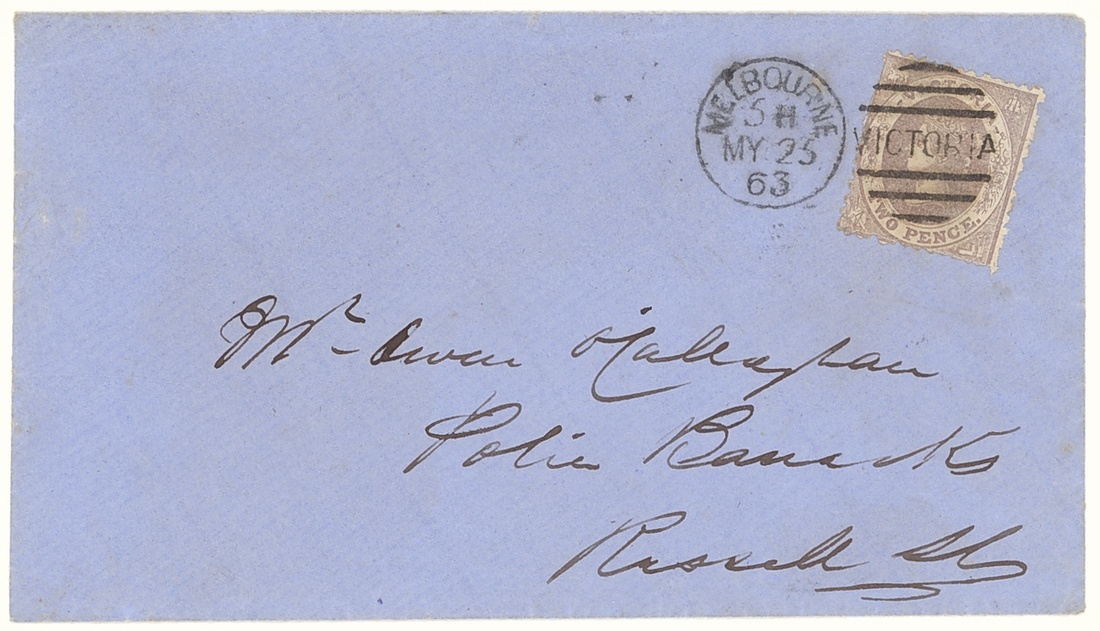 MELBOURNE
5 H
MY 25
63
VICTORIA
VICTORIA
TWO PENCE.
Mr Owen O'Callaghan
Police Barracks
Russell St